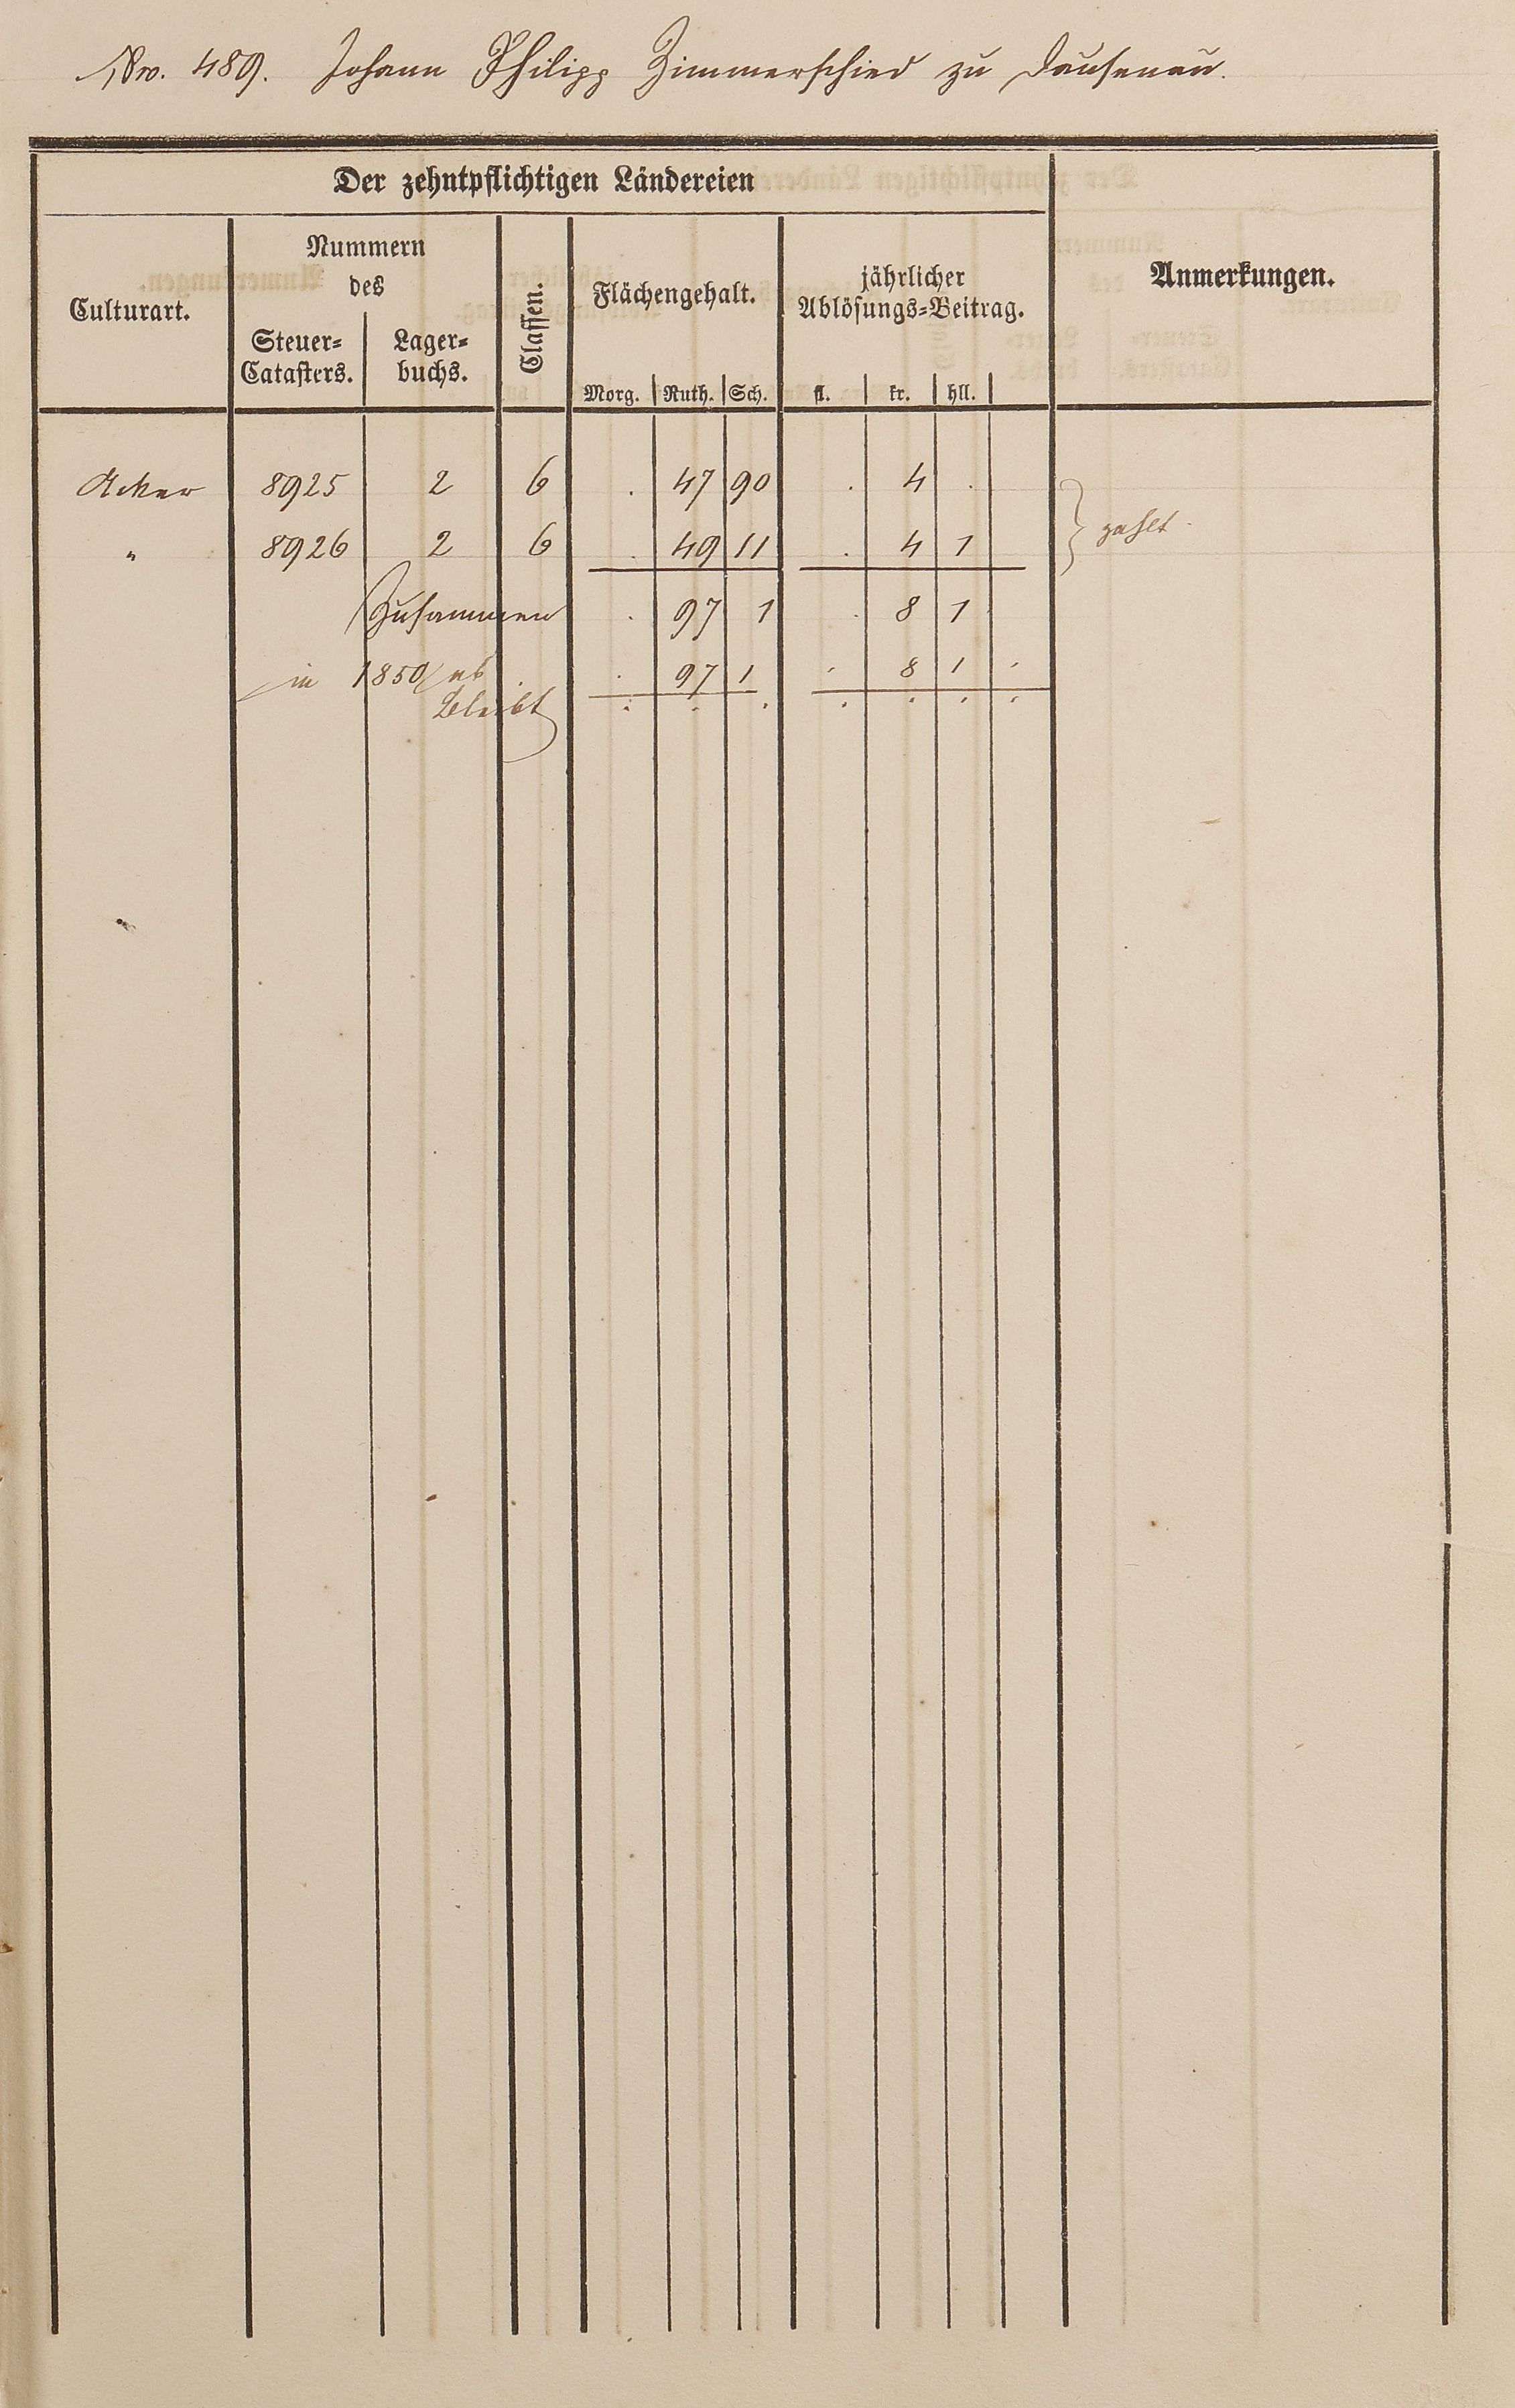 Nro. 489. Johann Philipp Zimmerschied zu Dausenau.
Der zehntpflichtigen Ländereien
Culturart.
Nummern
des
Steuer=
Catasters.
Lager=
buchs.
Classen.
Flächengehalt.
Morg. Ruth. Sch.
jährlicher
Ablösungs=Beitrag.
fl. kr. hll.
Anmerkungen.
Acker 8925 2 6 . 47 90 . 4 .
" 8926 2 6 . 49 11 . 4 1
} zahlt
Zusammen . 97 1 . 8 1
in 1850 ab . 97 1 . 8 1 .
Bleibt . . . . . . .